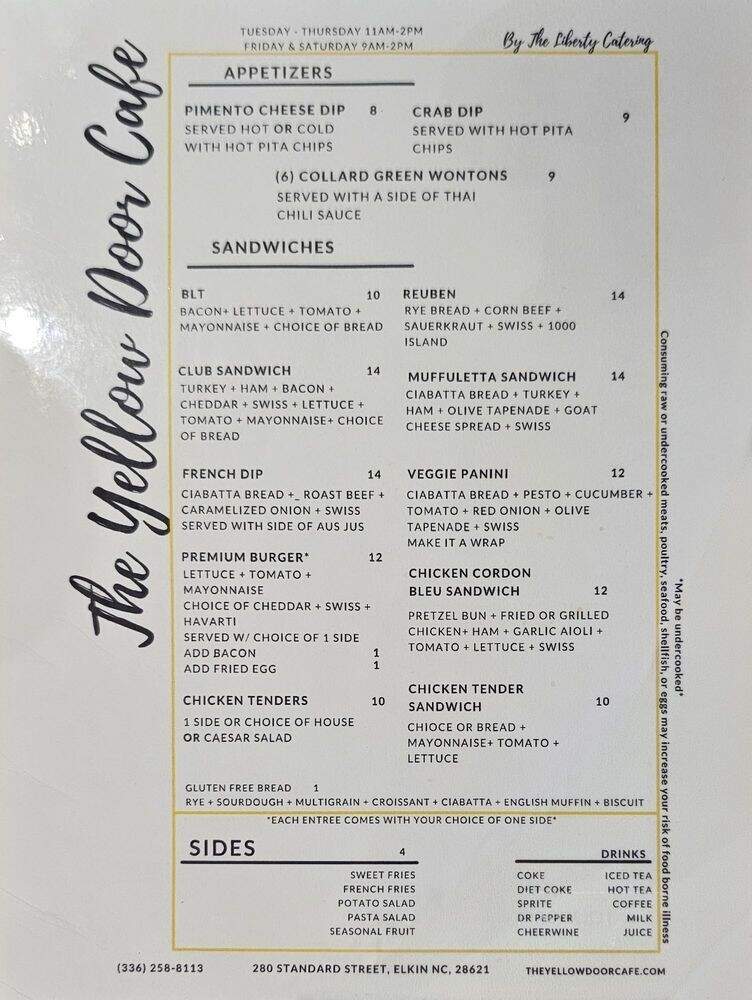 TUESDAY - THURSDAY 11AM-2PM
FRIDAY & SATURDAY 9AM-2PM
By The Liberty Catering
The Yellow Door Cafe
APPETIZERS
PIMENTO CHEESE DIP 8
SERVED HOT OR COLD
WITH HOT PITA CHIPS
CRAB DIP 9
SERVED WITH HOT PITA
CHIPS
(6) COLLARD GREEN WONTONS 9
SERVED WITH A SIDE OF THAI
CHILI SAUCE
SANDWICHES
BLT 10
BACON+ LETTUCE + TOMATO +
MAYONNAISE + CHOICE OF BREAD
REUBEN 14
RYE BREAD + CORN BEEF +
SAUERKRAUT + SWISS + 1000
ISLAND
CLUB SANDWICH 14
TURKEY + HAM + BACON +
CHEDDAR + SWISS + LETTUCE +
TOMATO + MAYONNAISE+ CHOICE
OF BREAD
MUFFULETTA SANDWICH 14
CIABATTA BREAD + TURKEY +
HAM + OLIVE TAPENADE + GOAT
CHEESE SPREAD + SWISS
FRENCH DIP 14
CIABATTA BREAD +_ ROAST BEEF +
CARAMELIZED ONION + SWISS
SERVED WITH SIDE OF AUS JUS
VEGGIE PANINI 12
CIABATTA BREAD + PESTO + CUCUMBER +
TOMATO + RED ONION + OLIVE
TAPENADE + SWISS
MAKE IT A WRAP
PREMIUM BURGER* 12
LETTUCE + TOMATO +
MAYONNAISE
CHOICE OF CHEDDAR + SWISS +
HAVARTI
SERVED W/ CHOICE OF 1 SIDE
ADD BACON 1
ADD FRIED EGG 1
CHICKEN CORDON
BLEU SANDWICH 12
PRETZEL BUN + FRIED OR GRILLED
CHICKEN+ HAM + GARLIC AIOLI +
TOMATO + LETTUCE + SWISS
CHICKEN TENDERS 10
1 SIDE OR CHOICE OF HOUSE
OR CAESAR SALAD
CHICKEN TENDER
SANDWICH 10
CHIOCE OR BREAD +
MAYONNAISE+ TOMATO +
LETTUCE
GLUTEN FREE BREAD 1
RYE + SOURDOUGH + MULTIGRAIN + CROISSANT + CIABATTA + ENGLISH MUFFIN + BISCUIT
*EACH ENTREE COMES WITH YOUR CHOICE OF ONE SIDE*
SIDES 4
SWEET FRIES
FRENCH FRIES
POTATO SALAD
PASTA SALAD
SEASONAL FRUIT
DRINKS
COKE ICED TEA
DIET COKE HOT TEA
SPRITE COFFEE
DR PEPPER MILK
CHEERWINE JUICE
*May be undercooked*
Consuming raw or undercooked meats, poultry, seafood, shellfish, or eggs may increase your risk of food borne illness
(336) 258-8113 280 STANDARD STREET, ELKIN NC, 28621 THEYELLOWDOORCAFE.COM